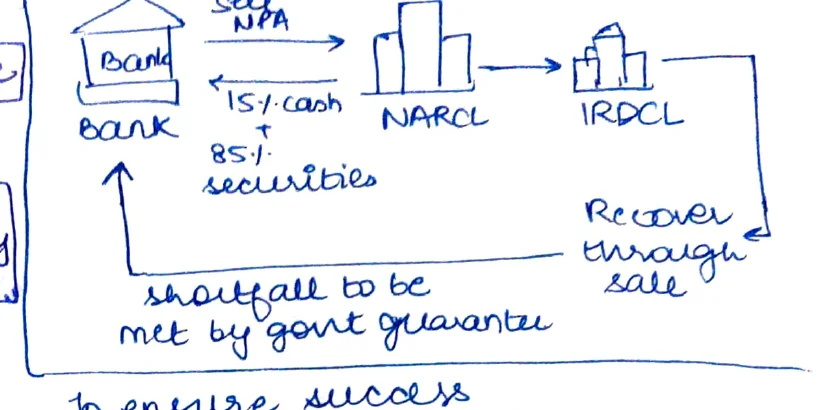 Sell
NPA
Bank
15% cash
+
85%
securities
BANK
NARCL
IRDCL
Recover
through
sale
shortfall to be
met by govt guarantee
To ensure success